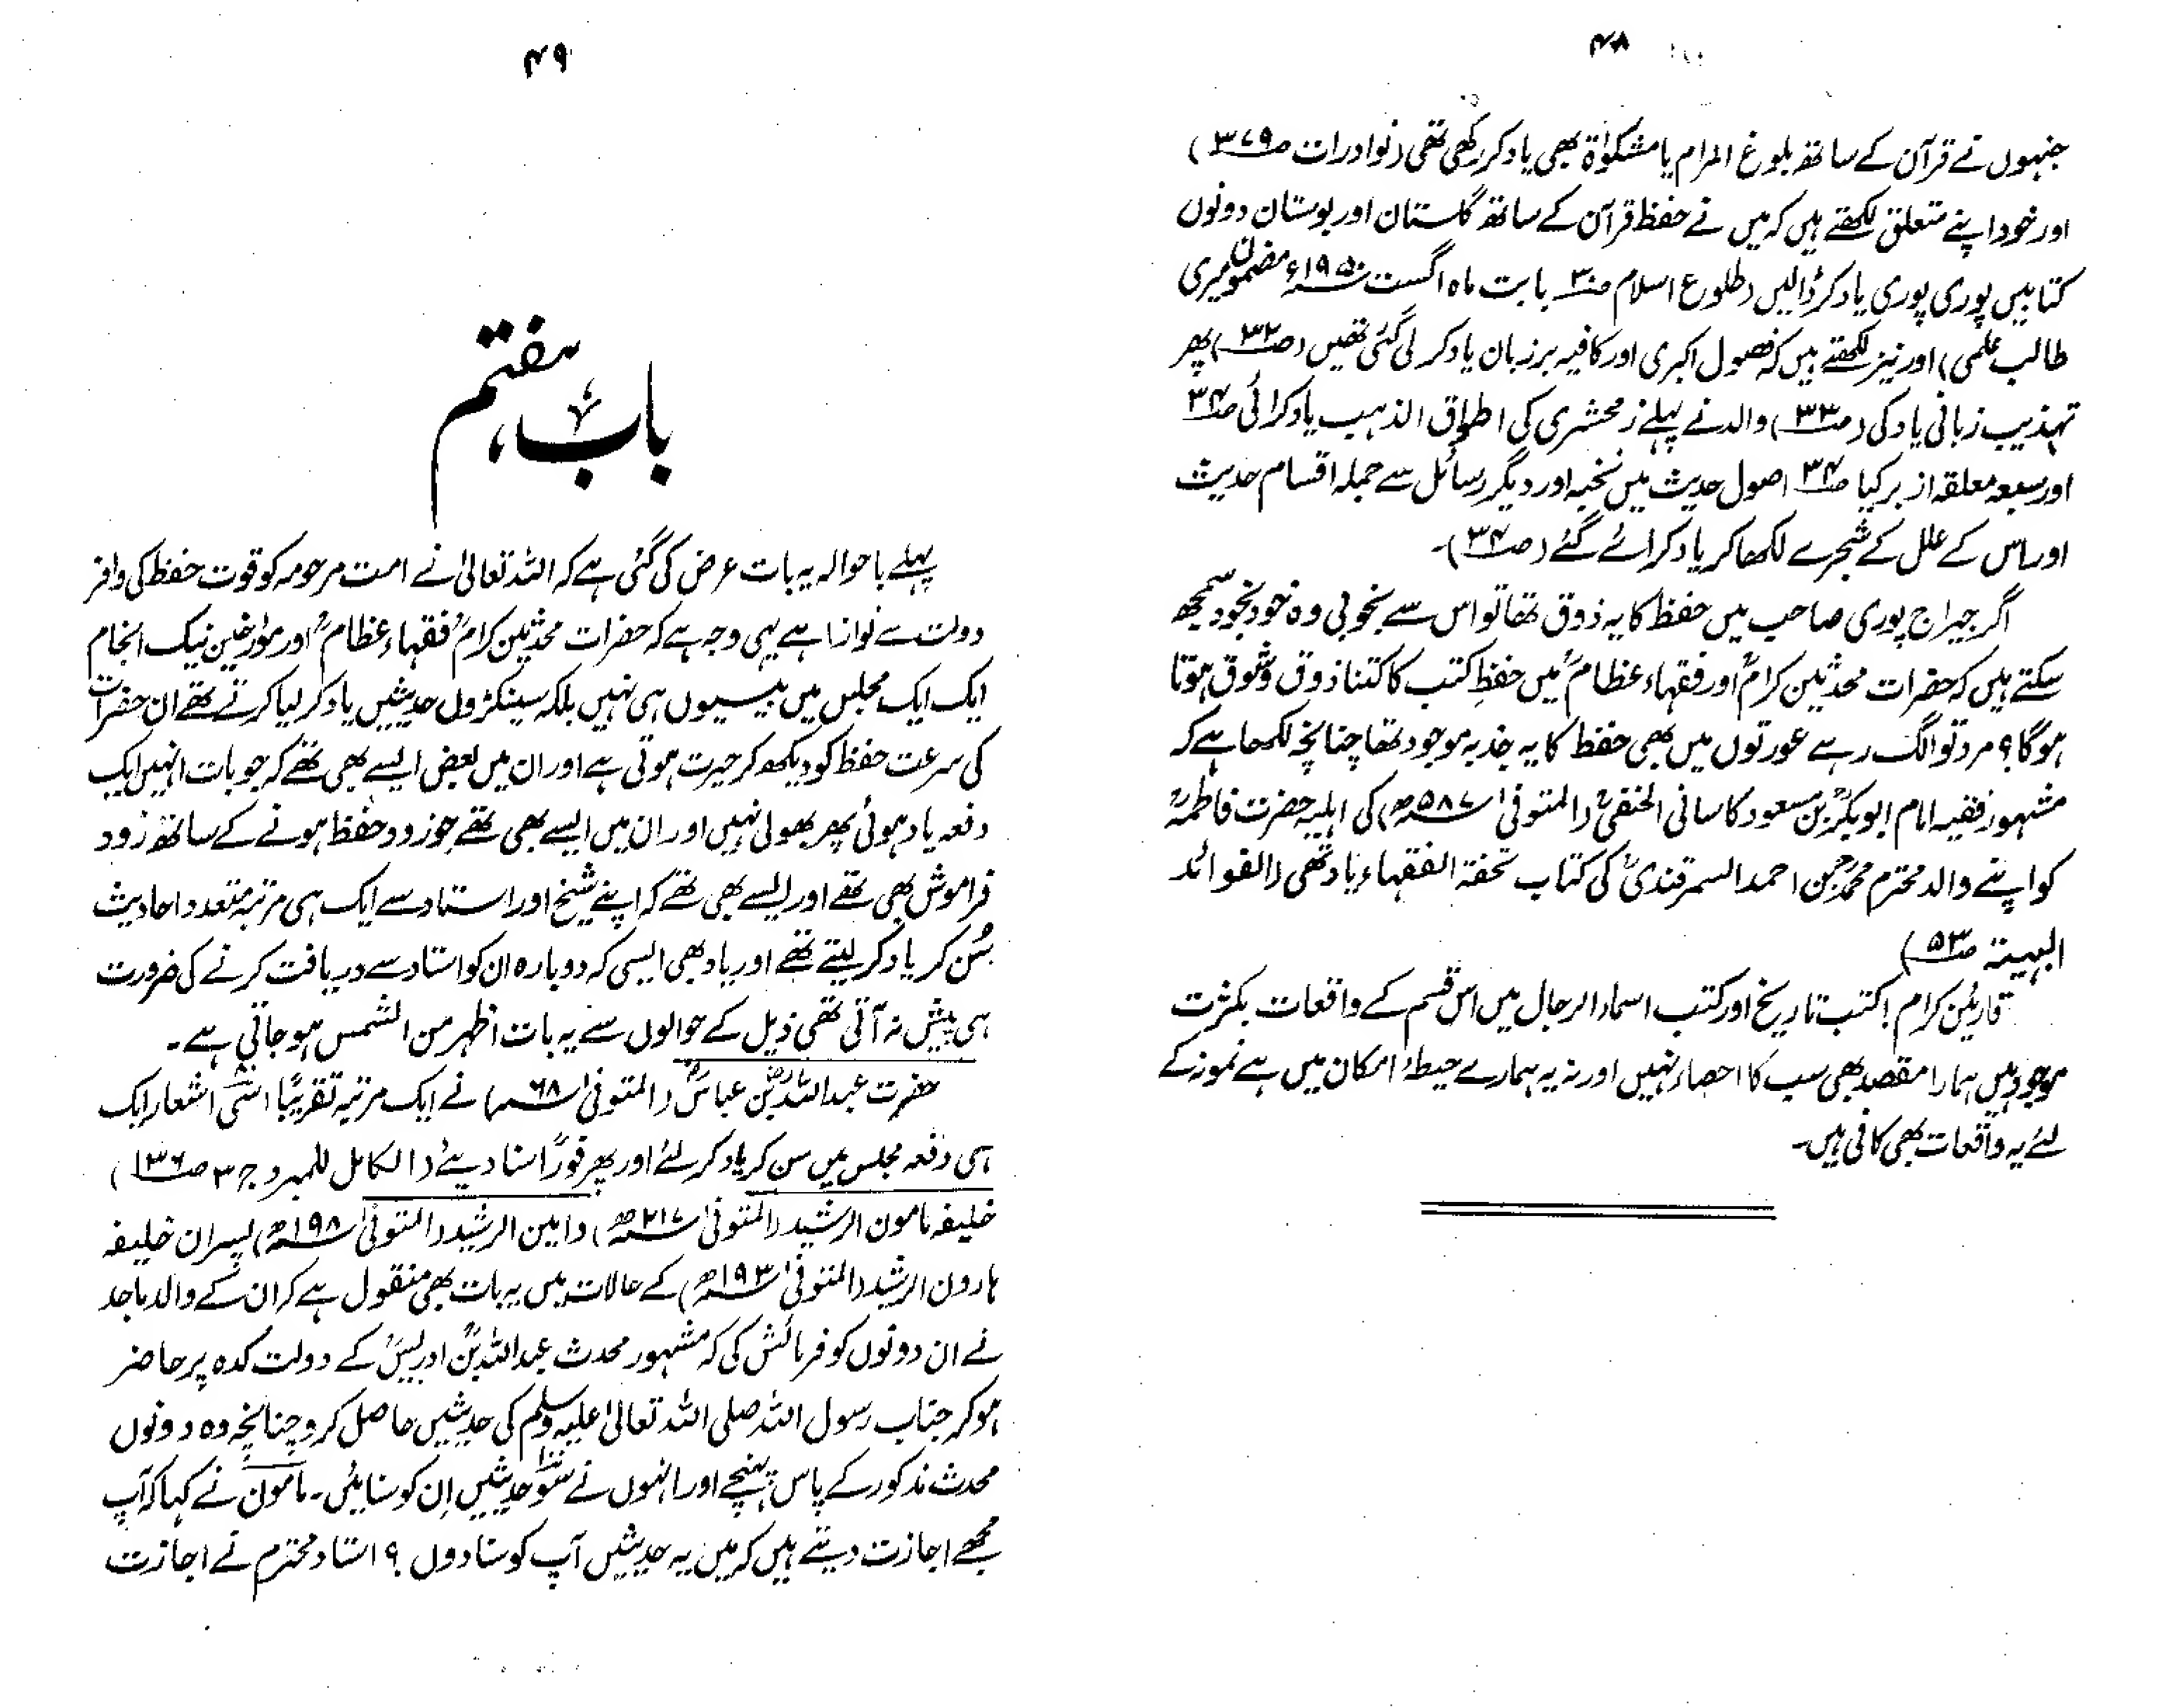 ۴۸
جنہوں نے قرآن کے ساتھ بلوغ المرام یا مشکوٰۃ بھی یاد کر رکھی تھی (نوادرات ص۳۷۹)
اور خود اپنے متعلق لکھتے ہیں کہ میں نے حفظ قرآن کے ساتھ گلستان اور بوستان دونوں
کتابیں پوری پوری یاد کر ڈالیں (طلوع اسلام ص۳۰ بابت ماہ اگست ۱۹۵۰ء مضمون میری
طالب علمی) اور نیز لکھتے ہیں کہ فصول اکبری اور کافیہ بر زبان یاد کر لی گئی تھیں (ص۳۲) پھر
تہذیب زبانی یاد کی (ص۳۳) والد نے پہلے زمحشری کی اطواق الذہیب یاد کرائی ص۳۴
اور سبعہ معلقہ از بر کیا ص۳۴ اصول حدیث میں نخبہ اور دیگر رسائل سے جملہ اقسام حدیث
اور اس کے علل کے شجرے لکھا کر یاد کرائے گئے (ص۳۴)۔
اگر جیراج پوری صاحب میں حفظ کا یہ ذوق تھا تو اس سے بخوبی وہ خود بخود سمجھ
سکتے ہیں کہ حضرات محدثین کرامؒ اور فقہاء عظامؒ میں حفظِ کتب کا کتنا ذوق و شوق ہوتا
ہوگا؟ مرد تو الگ رہے عورتوں میں بھی حفظ کا یہ جذبہ موجود تھا چنانچہ لکھا ہے کہ
مشہور فقیہ امام ابوبکرؒ بن مسعود کاسانی الحنفیؒ (المتوفیٰ ۵۸۷ھ) کی اہلیہ حضرت فاطمہؒ
کو اپنے والد محترم محمدؒ بن احمد السمرقندیؒ کی کتاب تحفۃ الفقہاء یاد تھی (الفوائد
البہیتہ ص۵۳)
قارئین کرام! کتب تاریخ اور کتب اسماء الرجال میں اس قسم کے واقعات بکثرت
موجود ہیں ہمارا مقصد بھی سب کا احصاء نہیں اور نہ یہ ہمارے حیطۂ امکان میں ہے نمونہ کے
لئے یہ واقعات بھی کافی ہیں۔
۴۹
باب ہفتم
پہلے باحوالہ یہ بات عرض کی گئی ہے کہ اللہ تعالیٰ نے امت مرحومہ کو قوت حفظ کی وافر
دولت سے نوازا ہے یہی وجہ ہے کہ حضرات محدثین کرامؒ فقہاء عظامؒ اور مؤرخین نیک انجام
ایک ایک مجلس میں بیسیوں ہی نہیں بلکہ سینکڑوں حدیثیں یاد کر لیا کرتے تھے ان حضرات
کی سرعت حفظ کو دیکھ کر حیرت ہوتی ہے اور ان میں بعض ایسے بھی تھے کہ جو بات انہیں ایک
دفعہ یاد ہوئی پھر بھولی نہیں اور ان میں ایسے بھی تھے جو زود حفظ ہونے کے ساتھ زود
فراموش بھی تھے اور ایسے بھی تھے کہ اپنے شیخ اور استاد سے ایک ہی مرتبہ متعدد احادیث
سُن کر یاد کر لیتے تھے اور یاد بھی ایسی کہ دوبارہ ان کو استاد سے دریافت کرنے کی ضرورت
ہی پیش نہ آتی تھی ذیل کے حوالوں سے یہ بات اظہر من الشمس ہو جاتی ہے۔
حضرت عبد اللہؓ بن عباسؓ (المتوفیٰ ۶۸ھ) نے ایک مرتبہ تقریباً اسّی اشعار ایک
ہی دفعہ مجلس میں سن کر یاد کر لئے اور پھر فوراً سنا دیئے (الکامل للمبرد ج۳ ص۱۳۶)
خلیفہ مامون الرشید (المتوفیٰ ۲۱۷ھ) و امین الرشید (المتوفیٰ ۱۹۸ھ) پسران خلیفہ
ہارون الرشید (المتوفیٰ ۱۹۳ھ) کے حالات میں یہ بات بھی منقول ہے کہ ان کے والد ماجد
نے ان دونوں کو فرمائش کی کہ مشہور محدث عبد اللہؒ بن ادریسؒ کے دولت کدہ پر حاضر
ہو کر جناب رسول اللہ صلی اللہ تعالیٰ علیہ وسلم کی حدیثیں حاصل کرو چنانچہ وہ دونوں
محدث مذکور کے پاس پہنچے اور انہوں نے سو حدیثیں ان کو سنائیں۔ مامون نے کہا کہ آپ
مجھے اجازت دیتے ہیں کہ میں یہ حدیثیں آپ کو سنا دوں؟ استاد محترم نے اجازت